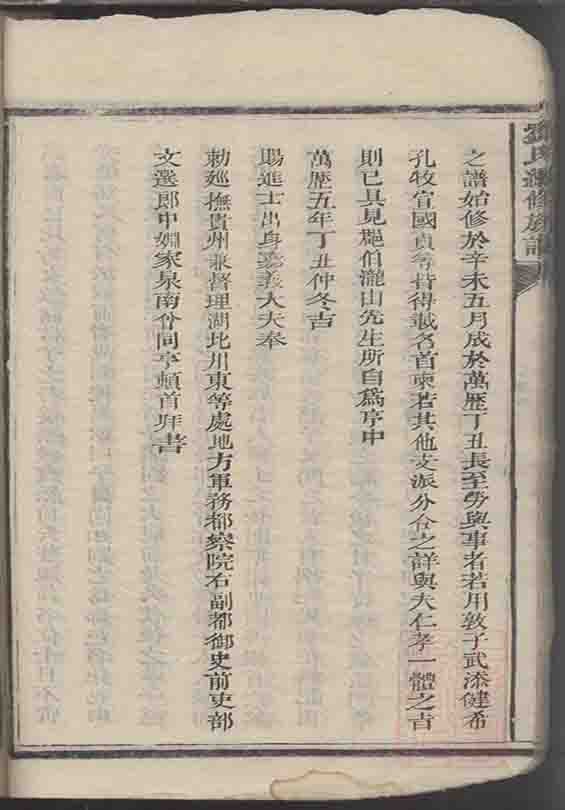 之譜始修於辛未五月成於萬歷丁丑長至勞與事者若用敦子武添健希
孔牧宜國貞等皆得載名首柬若其他支派分合之詳與夫仁孝一體之旨
則已具見 伯瀧山先生所自為序中
萬歷五年丁丑仲冬吉
賜進士出身嘉義大夫奉
勅廵撫貴州兼督理湖北川東等處地方軍務都察院右副都御史前吏部
文選郎中婣家泉南 同亨頓首拜書
氏 修族譜